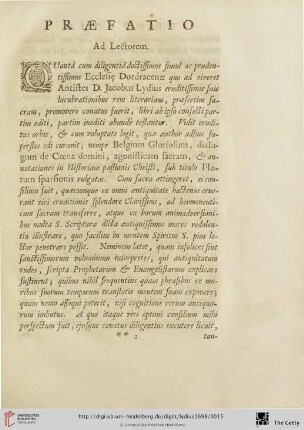 PRÆFATIO
Ad Lectorem.
QUantâ cum diligentiâ doctissimus simul ac pruden-
tissimus Ecclesiæ Dordracenæ quo ad viveret
Antistes D. Jacobus Lydius eruditissimis suis
lucubrationibus rem literariam, præsertim sa-
cram, promovere conatus fuerit, libri ab ipso confecti par-
tim editi, partim inediti abunde testantur. Vidit erudi-
tus orbis, & cum voluptate legit, quæ author adhuc su-
perstes edi curavit, nempe Belgium Gloriosum, dialo-
gum de Cœna domini, agonisticam sacram, & an-
notationes in Historiam passionis Christi, sub titulo Flo-
rum sparsionis vulgatas. Cum sacra attingeret, id con-
silium fuit, quæcunque ex omni antiquitate hactenus erue-
rant viri eruditionis splendore Clarissimi, ad hermeneuti-
cam sacram transferre, atque ex horum animadversioni-
bus multa S. Scripturæ dicta antiquissimos mores redolen-
tia illustrare, quo facilius in mentem Spiritus S. pius le-
ctor penetrare possit. Neminem latet, quam infelices sint
sanctissimorum voluminum interpretes, qui antiquitatum
rudes, scripta Prophetarum & Euangelistarum explicare
sustinent; quibus nihil frequentius quam phrasibus ex mo-
ribus suorum temporum translatis mentem suam exponere;
quam nemo assequi poterit, nisi cognitione rerum antiqua-
rum imbutus. At quo itaque viri optimi consilium mihi
perspectum fuit, ejusque conatus diligentius excutere licuit,
** 2
tan-
http://digi.ub.uni-heidelberg.de/diglit/lydius1698/0015
© Universitätsbibliothek Heidelberg
UNIVERSITÄTS-
BIBLIOTHEK
HEIDELBERG
The Getty